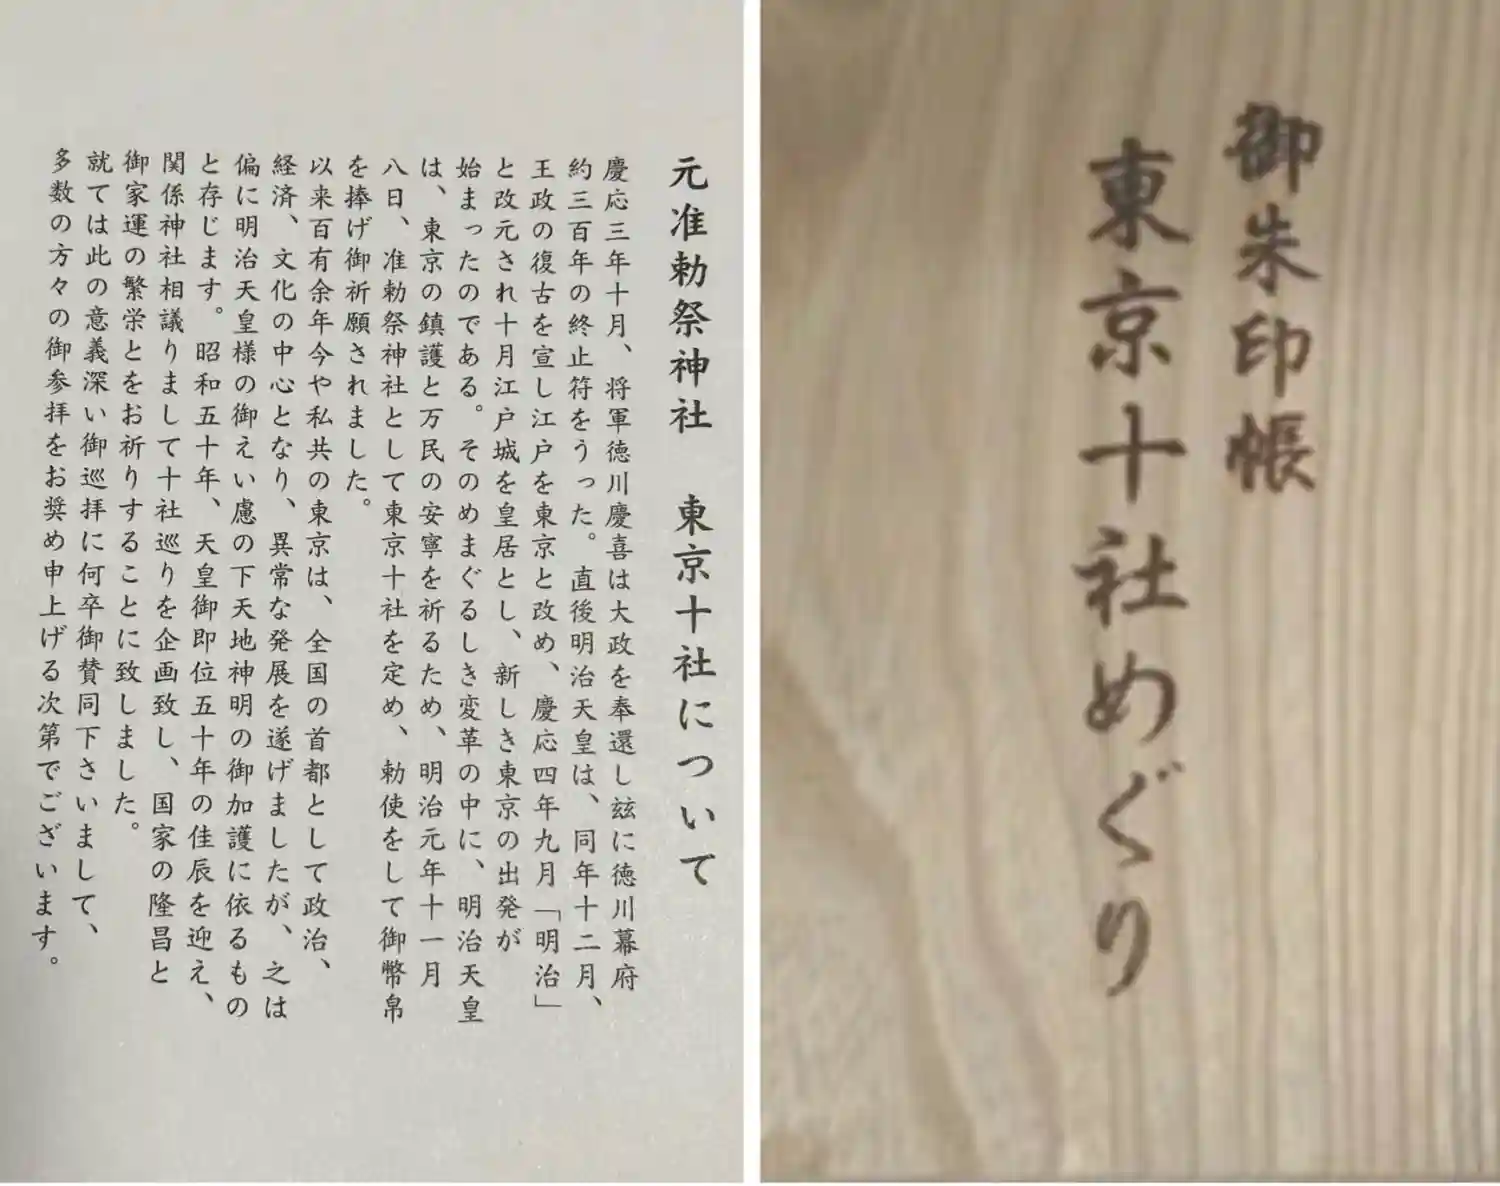 元准勅祭神社　東京十社について
慶応三年十月、将軍徳川慶喜は大政を奉還し玆に徳川幕府
約三百年の終止符をうった。直後明治天皇は、同年十二月、
王政の復古を宣し江戸を東京と改め、慶応四年九月「明治」
と改元され十月江戸城を皇居とし、新しき東京の出発が
始まったのである。そのめまぐるしき変革の中に、明治天皇
は、東京の鎮護と万民の安寧を祈るため、明治元年十一月
八日、准勅祭神社として東京十社を定め、勅使をして御幣帛
を捧げ御祈願されました。
以来百有余年今や私共の東京は、全国の首都として政治、
経済、文化の中心となり、異常な発展を遂げましたが、之は
偏に明治天皇様の御えい慮の下天地神明の御加護に依るもの
と存じます。昭和五十年、天皇御即位五十年の佳辰を迎え、
関係神社相議りまして十社巡りを企画致し、国家の隆昌と
御家運の繁栄とをお祈りすることに致しました。
就ては此の意義深い御巡拝に何卒御賛同下さいまして、
多数の方々の御参拝をお奨め申上げる次第でございます。
御朱印帳
東京十社めぐり